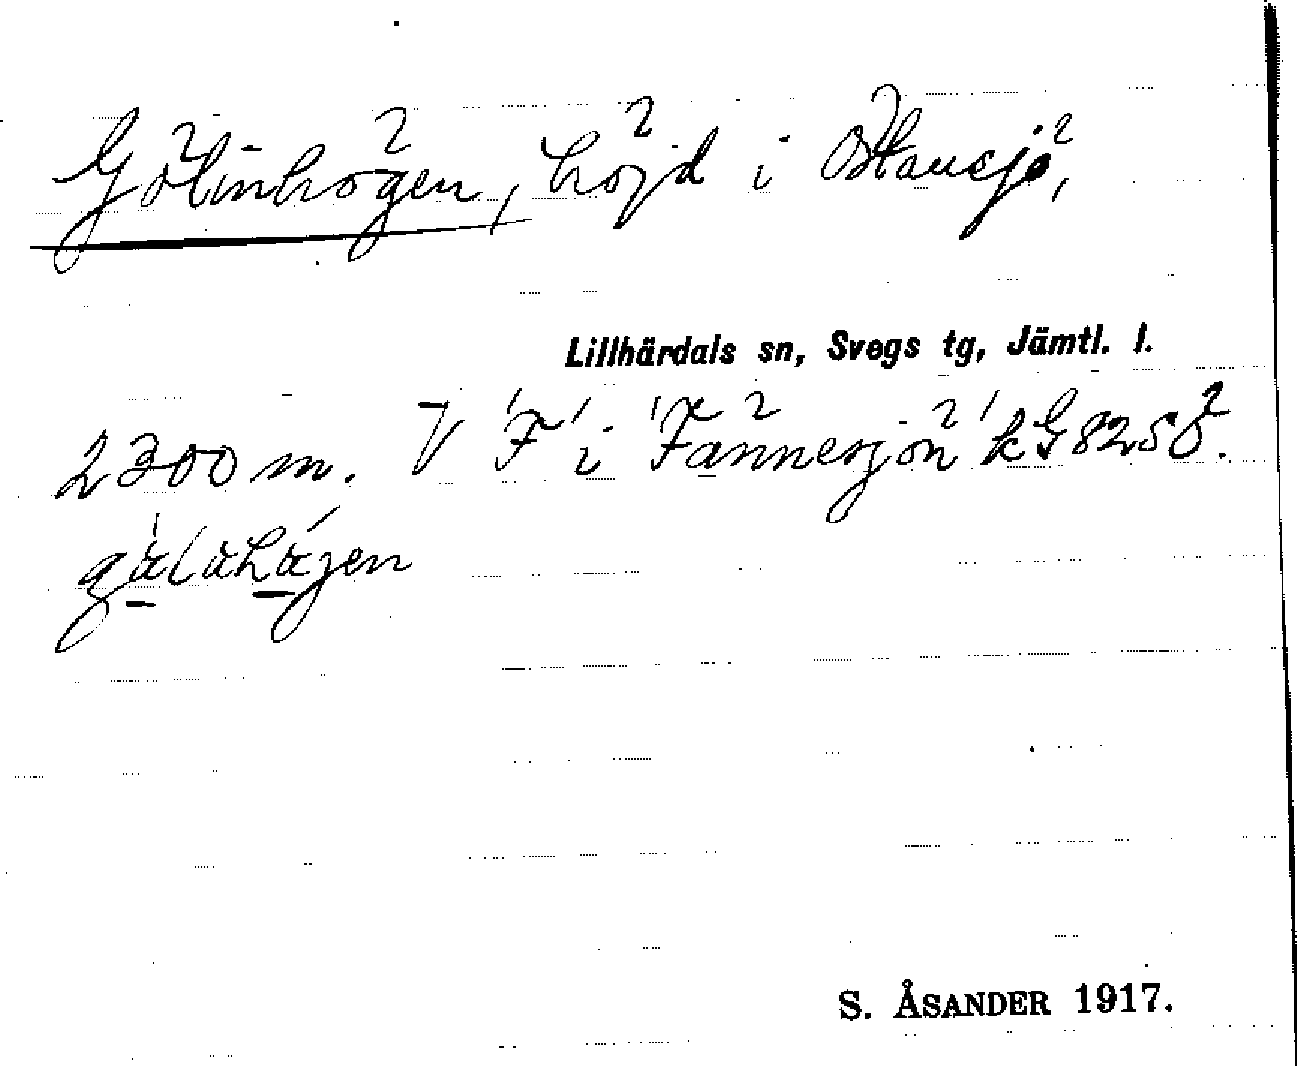 Gölinhögen, höjd i Östansjö,
Lillhärdals sn, Svegs tg, Jämtl. l.
2300 m. V 'F' i 'Fannesjön' kG8258.
S. ÅSANDER 1917.